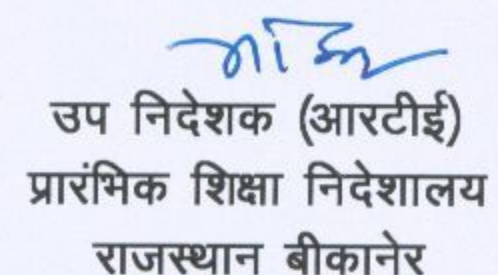 उप निदेशक (आरटीई)
प्रारंभिक शिक्षा निदेशालय
राजस्थान बीकानेर